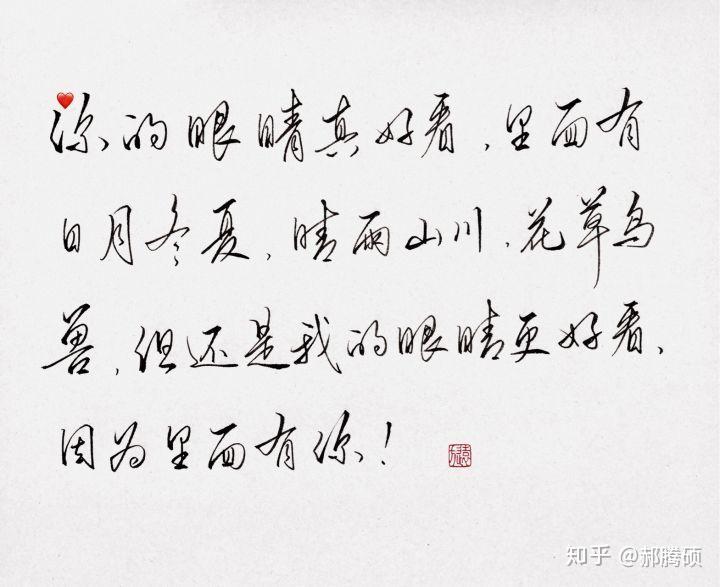 你的眼睛真好看，里面有
日月冬夏，晴雨山川，花草鸟
兽，但还是我的眼睛更好看，
因为里面有你！
知乎 @郝腾硕